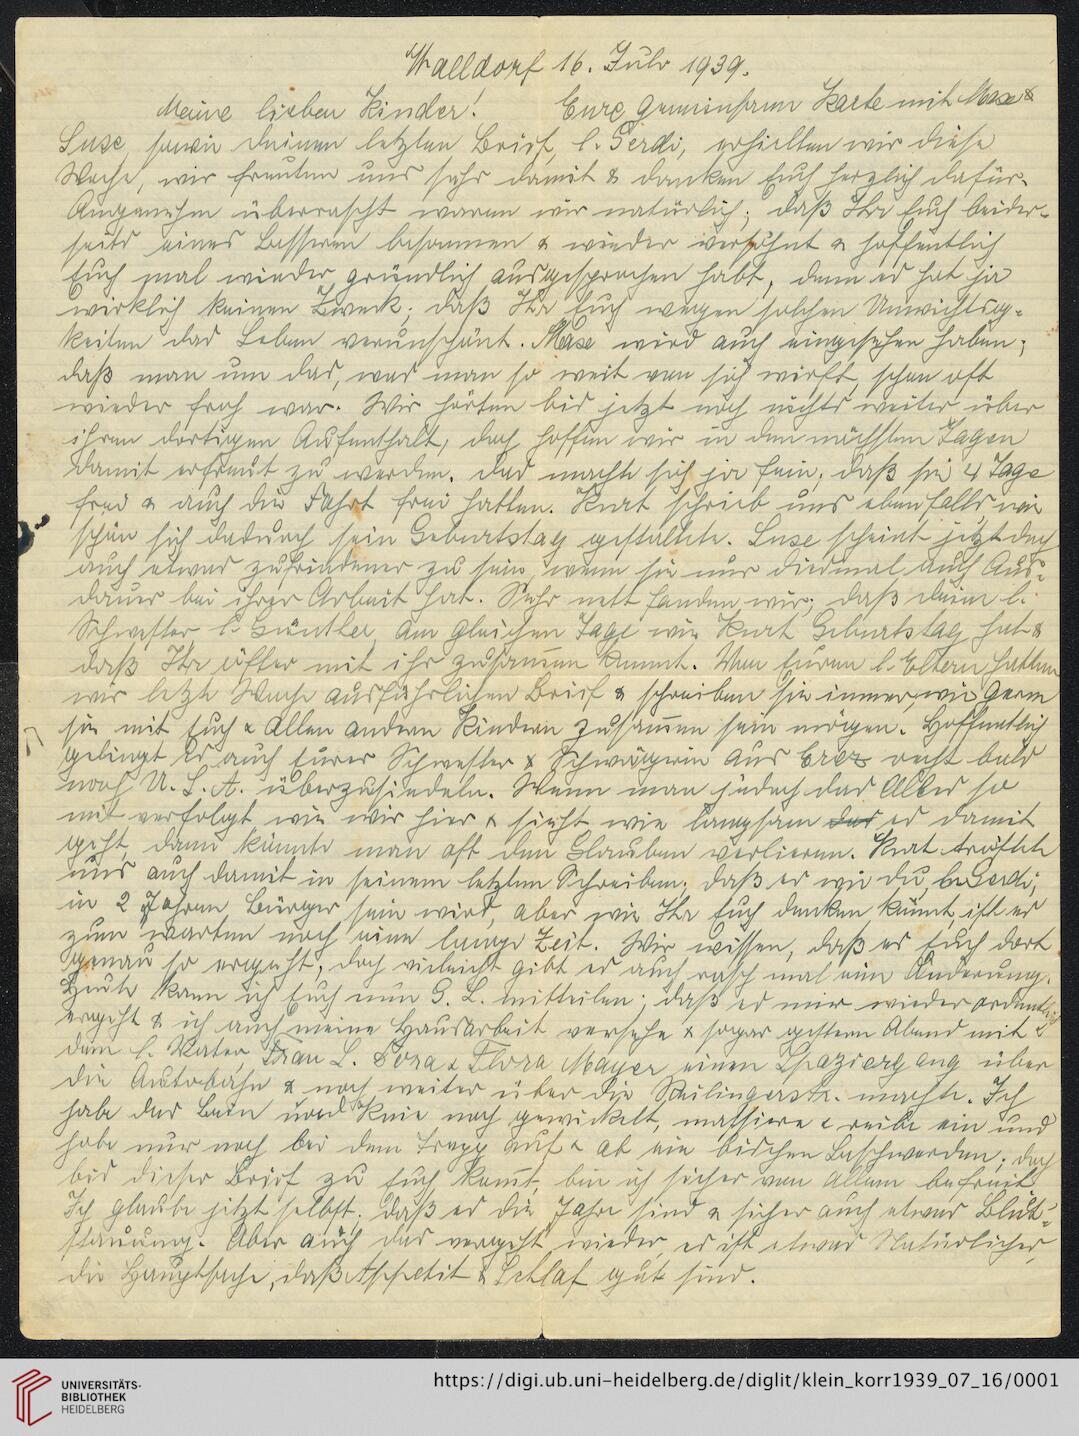 Walldorf 16. July 1939.
Meine lieben Kinder! Eure gemeinsame Karte mit Max &
Suse, sowie deinen letzten Brief, l. Gerdi, erhielten wir diese
Woche, wir freuten uns sehr damit & danken Euch herzlich dafür.
Angenehm überrascht waren wir natürlich, daß Ihr Euch beider-
seits eines Besseren besonnen & wieder versöhnt & hoffentlich
Euch mal wieder gründlich ausgesprochen habt, denn es hat ja
wirklich keinen Zweck, daß Ihr Euch wegen solchen Unwichtig-
keiten das Leben verunschönt. Max wird auch eingesehen haben,
daß man um das, was man so weit von sich wirft, schon oft
wieder froh war. Wir hörten bis jetzt noch nichts weiter über
ihren dortigen Aufenthalt, doch hoffen wir in den nächsten Tagen
damit erfreut zu werden. Das machte sich ja fein, daß sie 4 Tage
frei & auch die Fahrt frei hatten. Kurt schrieb uns ebenfalls wie
schön sich dadurch sein Geburtstag gestaltete. Suse scheint jetzt doch
auch etwas zufriedener zu sein, wenn sie nur diesmal auch Aus-
dauer bei ihrer Arbeit hat. Sehr nett fanden wir, daß deine l.
Schwester l. Günther, am gleichen Tage wie Kurt Geburtstag hat &
daß Ihr öfter mit ihr zusammen kommt. Von Euren l. Eltern hatten
wir letzte Woche ausführlichen Brief & schreiben sie immer, wie gern
sie mit Euch & Allen andern Kindern zusammen sein mögen. Hoffentlich
gelingt es auch Eurer Schwester & Schwägerin aus recht bald
nach U.S.A. überzusiedeln. Wenn man jedoch das Alles so
mit verfolgt wie wir hier & sieht wie langsam das es damit
geht, dann könnte man oft den Glauben verlieren. Kurt tröstete
uns auch damit in seinem letzten Schreiben, daß er wie du, l. Gerdi,
in 2 Jahren Bürger sein wird, aber wie Ihr Euch denken könnt, ist es
zum warten noch eine lange Zeit. Wir wissen, daß es Euch dort
genau so ergeht, doch vieleicht gibt es auch rasch mal eine Änderung.
Heute kann ich Euch nun G. L. mitteilen, daß es mir wieder ordentlich
ergeht & ich auch meine Hausarbeit versehe & sogar gestern Abend mit
dem l. Vater, Frau L. Dora & Flora Mayer einen Spaziergang über
die Autobahn & noch weiter über die Reilingerstr. machte. Ich
habe das Bein und Knie noch gewickelt, massiere & reibe ein und
habe nur noch bei dem Trepp auf & ab ein bischen Beschwerden, doch
bis dieser Brief zu Euch kommt, bin ich sicher von Allem befreit.
Ich glaube jetzt selbst, daß es die Jahre sind & sicher auch etwas Blut-
stauung. Aber auch das vergeht wieder, es ist etwas Natürliches,
die Hauptsache, daß Appetit & Schlaf gut sind.
UNIVERSITÄTS-
BIBLIOTHEK
HEIDELBERG
https://digi.ub.uni-heidelberg.de/diglit/klein_korr1939_07_16/0001